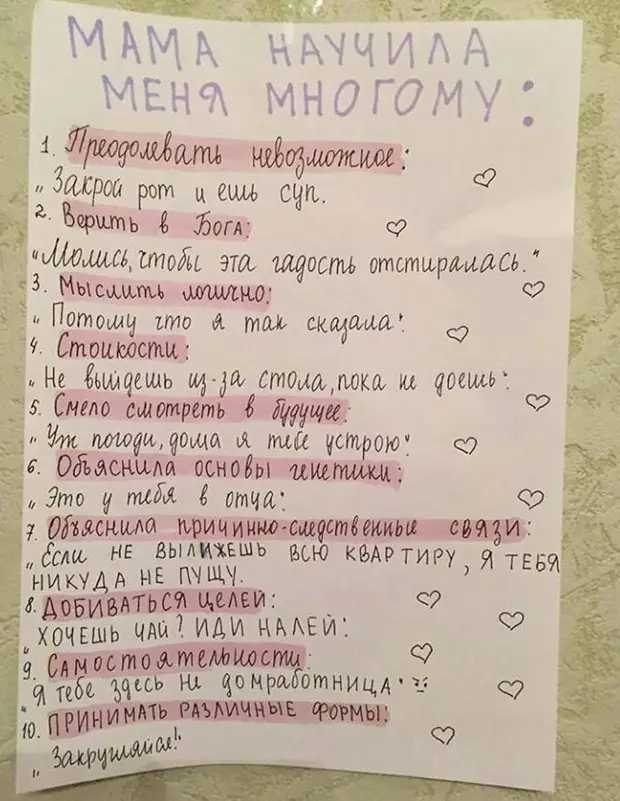 МАМА НАУЧИЛА
МЕНЯ МНОГОМУ:
1. Преодолевать невозможное:
„Закрой рот и ешь суп.
2. Верить в Бога:
"Молись, чтобы эта гадость отстиралась."
3. Мыслить логично:
„Потому что я так сказала".
4. Стойкости:
„Не выйдешь из-за стола, пока не доешь".
5. Смело смотреть в будущее:
„Уж погоди, дома я тебе устрою".
6. Объяснила основы генетики:
„Это у тебя в отца".
7. Объяснила причинно-следственные связи:
„Если не вылижешь всю квартиру, я тебя
никуда не пущу.
8. Добиваться целей:
„Хочешь чай? Иди налей".
9. Самостоятельности:
„Я тебе здесь не домработница"
10. Принимать различные формы:
„Закругляйся!"